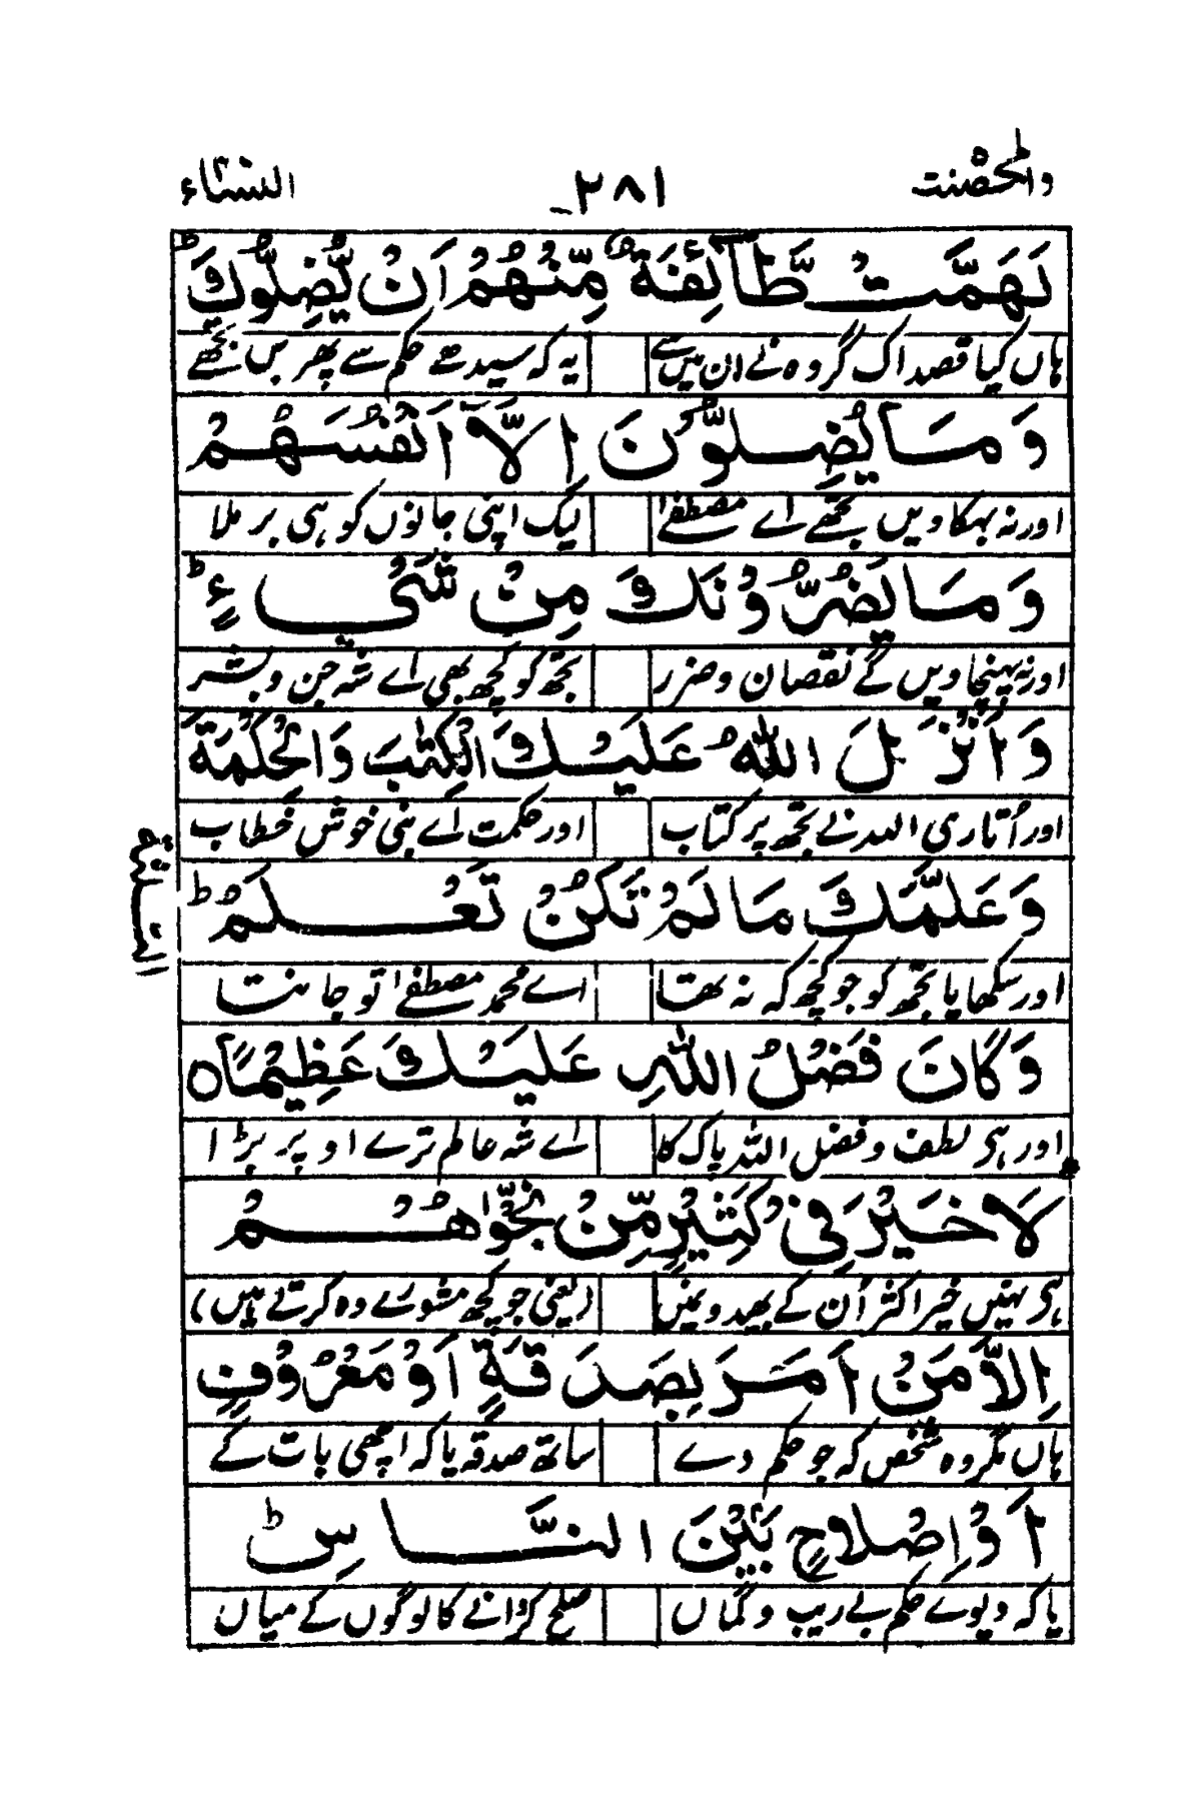 والمحصنت ٢٨١ النساء
لَهَمَّتْ طَّآئِفَةٌ مِّنْهُمْ اَنْ يُّضِلُّوْكَ ط
ہاں کیا قصد اک گروہ نے ان میں سے یہ کہ سیدھے حکم سے پھریں تجھے
وَمَا يُضِلُّوْنَ اِلَّآ اَنْفُسَهُمْ
اور نہ بہکاویں تجھے اے مصطفےٰ لیک اپنی جانوں کو ہی بر ملا
وَمَا يَضُرُّوْنَكَ مِنْ شَيْءٍ ط
اور نہ پہنچاویں گے نقصان و ضرر تجھ کو کچھ بھی اے شہ جن و بشر
وَاَنْزَلَ اللهُ عَلَيْكَ الْكِتٰبَ وَالْحِكْمَةَ
اور اُتاری اللہ نے تجھ پر کتاب اور حکمت اے نبی خوش خطاب
وَعَلَّمَكَ مَا لَمْ تَكُنْ تَعْلَمُ ط
اور سکھایا تجھ کو جو کچھ کہ نہ تھا اے محمد مصطفےٰ تو جانتا
وَكَانَ فَضْلُ اللهِ عَلَيْكَ عَظِيْمًا ه
اور ہی لطف و فضل اللہ پاک کا اے شہ عالم ترے اوپر بڑا
لَا خَيْرَ فِيْ كَثِيْرٍ مِّنْ نَّجْوٰهُمْ
ہی نہیں خیر اکثر اُن کے بھید و نمیں (یعنی جو کچھ مشورے وہ کرتے ہیں)
اِلَّا مَنْ اَمَرَ بِصَدَقَةٍ اَوْ مَعْرُوْفٍ
ہاں مگر وہ شخص کہ جو حکم دے ساتھ صدقہ یا کہ اچھی بات کے
اَوْ اِصْلَاحٍ بَيْنَ النَّاسِ ط
یا کہ دیوے حکم بے ریب و گماں صلح کروانے کا لوگوں کے میاں